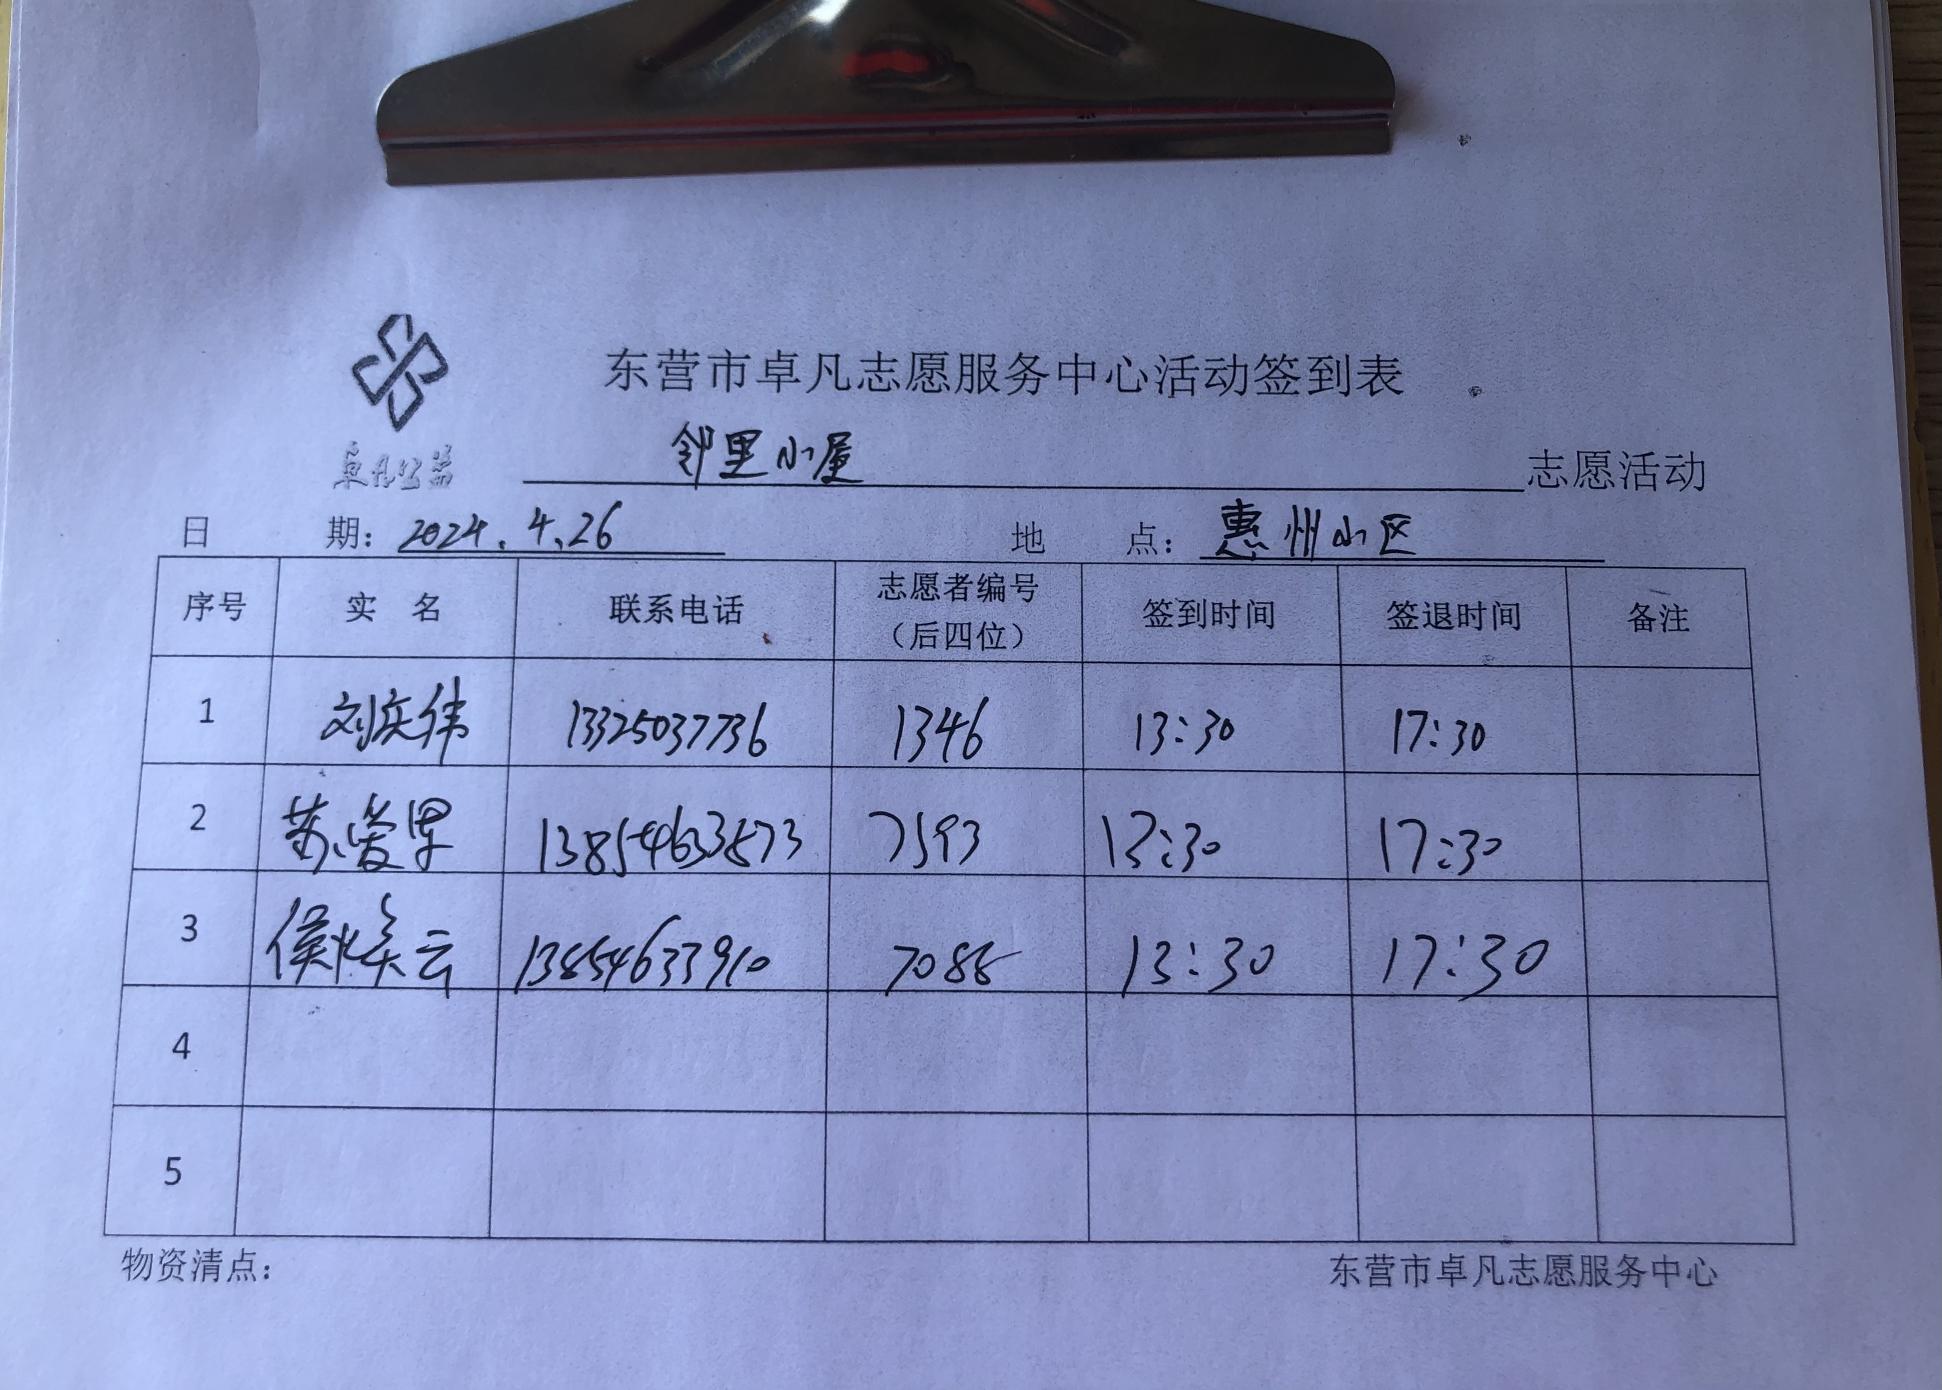 东营市卓凡志愿服务中心活动签到表
卓凡公益
邻里小屋 志愿活动
日期：2024.4.26 地点：惠州小区
序号 实名 联系电话 志愿者编号（后四位） 签到时间 签退时间 备注
1 刘庆伟 13325037736 1346 13:30 17:30
2 苏爱军 13854633573 7593 13:30 17:30
3 侯焕云 13854633910 7088 13:30 17:30
4
5
物资清点： 东营市卓凡志愿服务中心